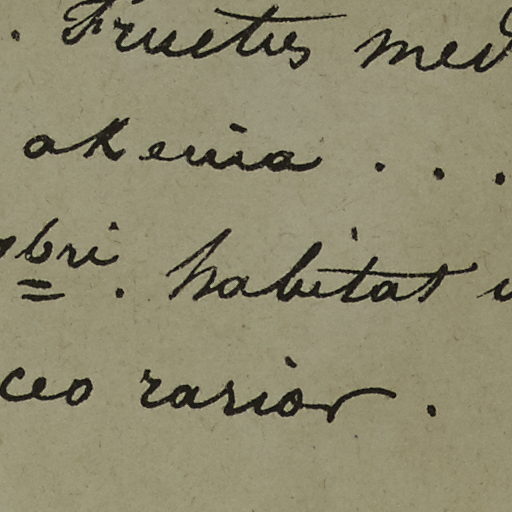 . Fructus med
akenia . . .
bri. habitat
ceo rarior.